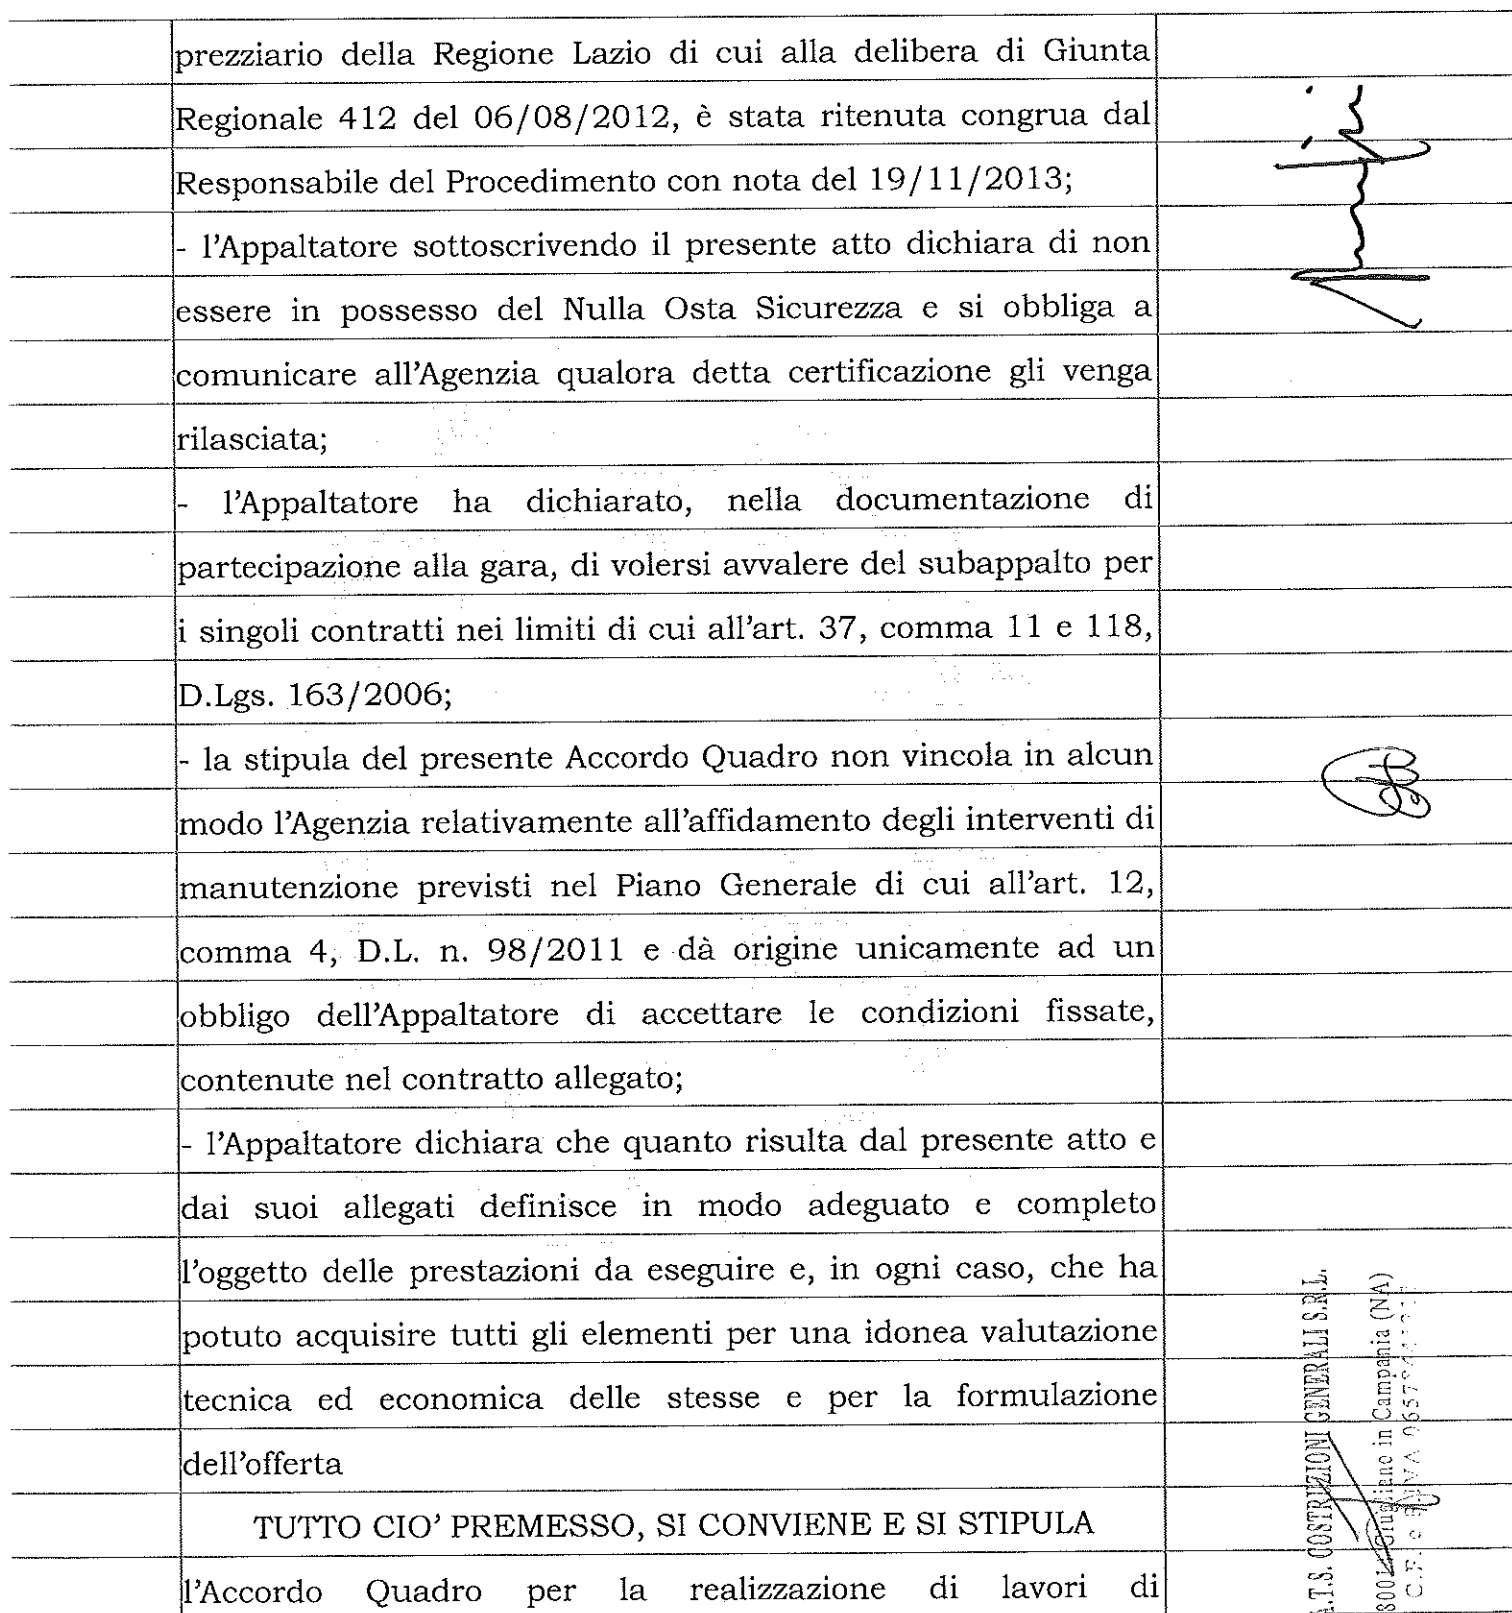 prezziario della Regione Lazio di cui alla delibera di Giunta
Regionale 412 del 06/08/2012, è stata ritenuta congrua dal
Responsabile del Procedimento con nota del 19/11/2013;
- l'Appaltatore sottoscrivendo il presente atto dichiara di non
essere in possesso del Nulla Osta Sicurezza e si obbliga a
comunicare all'Agenzia qualora detta certificazione gli venga
rilasciata;
- l'Appaltatore ha dichiarato, nella documentazione di
partecipazione alla gara, di volersi avvalere del subappalto per
i singoli contratti nei limiti di cui all'art. 37, comma 11 e 118,
D.Lgs. 163/2006;
- la stipula del presente Accordo Quadro non vincola in alcun
modo l'Agenzia relativamente all'affidamento degli interventi di
manutenzione previsti nel Piano Generale di cui all'art. 12,
comma 4, D.L. n. 98/2011 e dà origine unicamente ad un
obbligo dell'Appaltatore di accettare le condizioni fissate,
contenute nel contratto allegato;
- l'Appaltatore dichiara che quanto risulta dal presente atto e
dai suoi allegati definisce in modo adeguato e completo
l'oggetto delle prestazioni da eseguire e, in ogni caso, che ha
potuto acquisire tutti gli elementi per una idonea valutazione
tecnica ed economica delle stesse e per la formulazione
dell'offerta
TUTTO CIO' PREMESSO, SI CONVIENE E SI STIPULA
l'Accordo Quadro per la realizzazione di lavori di
A.T.S. COSTRUZIONI GENERALI S.R.L.
Giugliano in Campania (NA)
C.F. e P.IVA